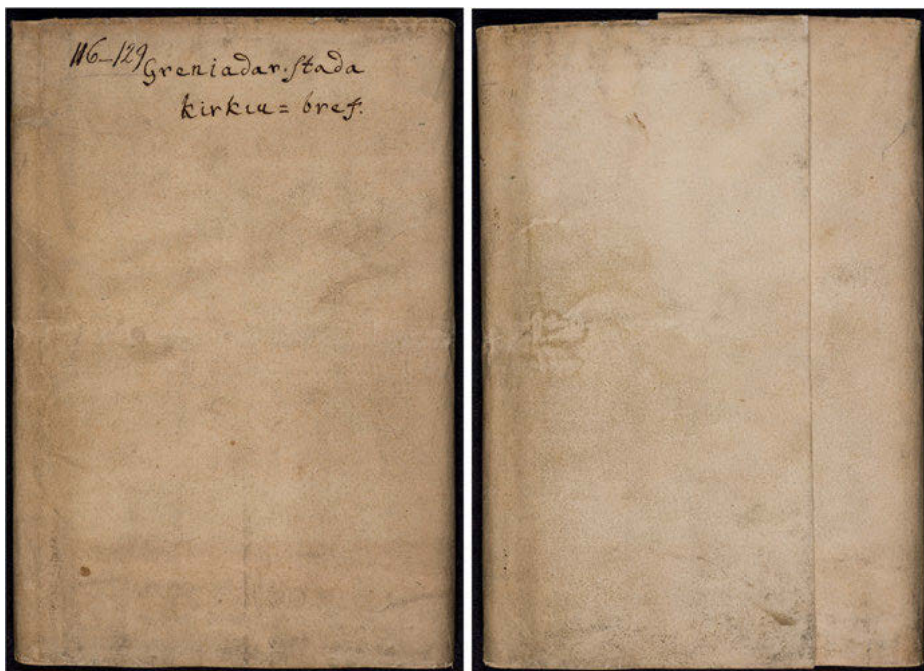 116–129 Greniadar.stada
kirkiu = bref.